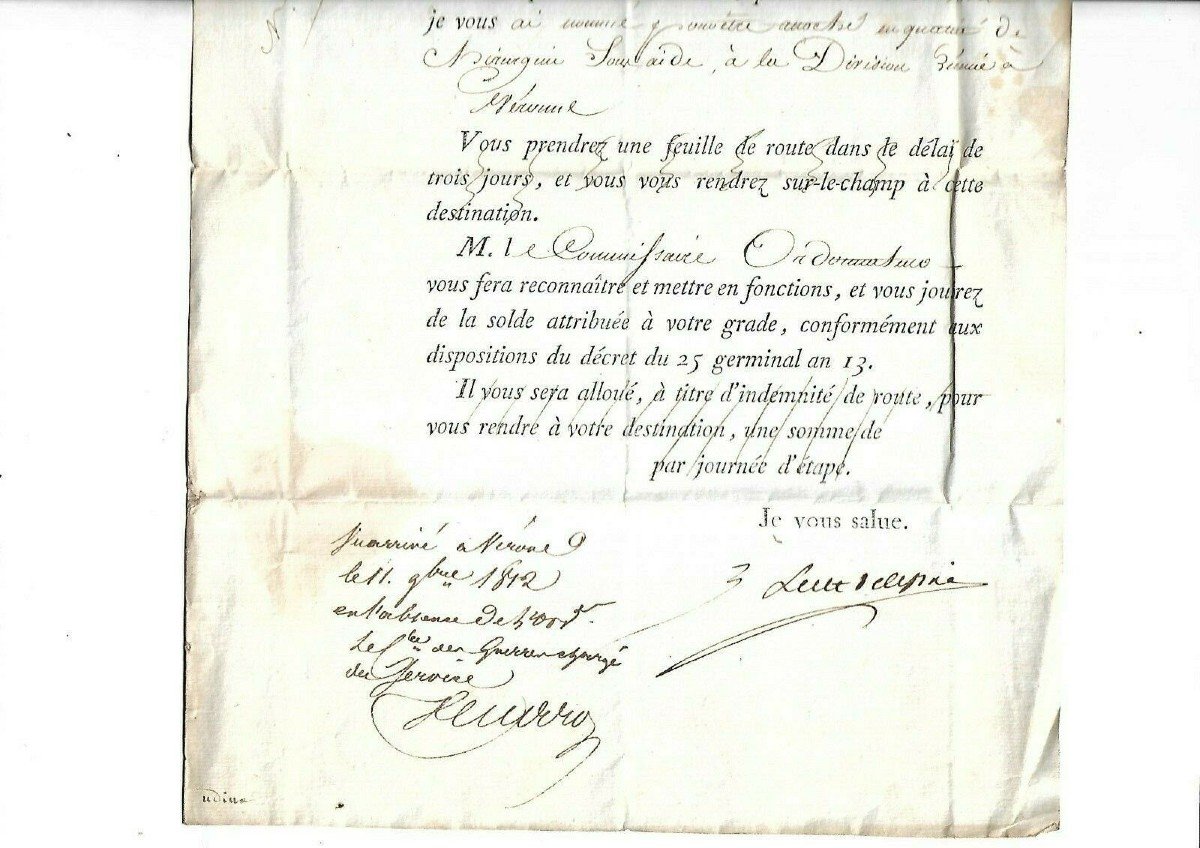 N°
je vous ai nommé pour être attaché en qualité de
Chirurgien Sous aide, à la Division réunie à
Véronne
Vous prendrez une feuille de route dans le délai de
trois jours, et vous vous rendrez sur-le-champ à cette
destination.
M. le Commissaire Ordonnateur
vous fera reconnaître et mettre en fonctions, et vous jouirez
de la solde attribuée à votre grade, conformément aux
dispositions du décret du 25 germinal an 13.
Il vous sera alloué, à titre d'indemnité de route, pour
vous rendre à votre destination, une somme de
par journée d'étape.
Je vous salue.
Vu arrivé à Vérone
le 11. 9bre 1812
en l'absence de l'ordr.
le Cre des Guerres chargé
du Service
udine